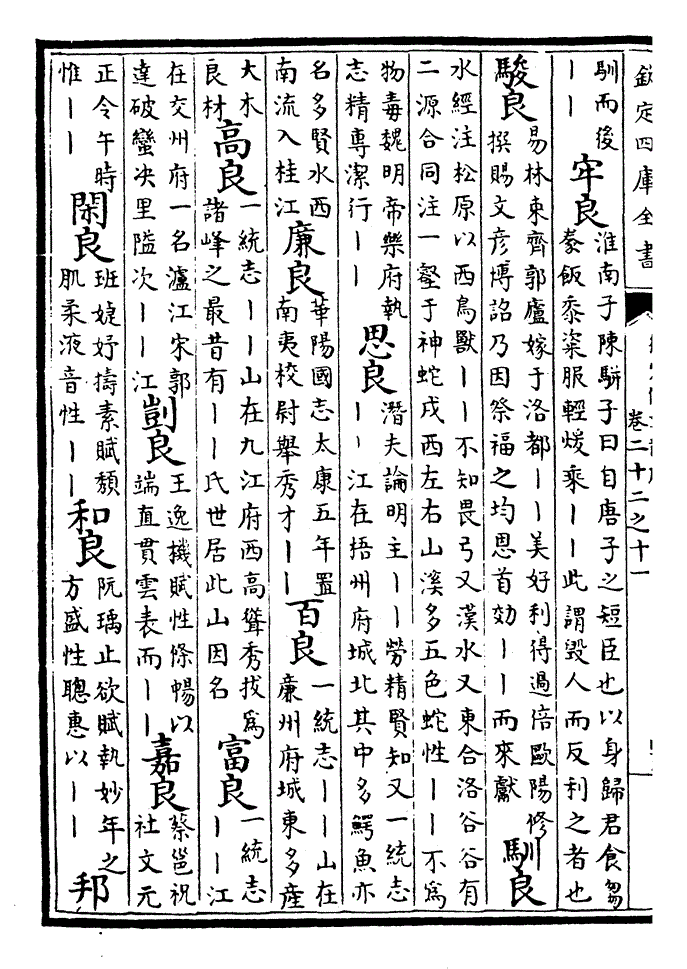 欽定四庫全書
卷二十二之十一
馴而後丨丨 牢良 淮南子陳駢子曰自唐子之短臣也以身歸君食芻豢飯黍粢服輕煖乘丨丨此謂毀人而反利之者也
駿良 易林東齊郭廬嫁于洛都丨丨美好利得過倍歐陽修撰賜文彦博詔乃因祭福之均思首効丨丨而來獻 馴良
水經注松原以西鳥獸丨丨不知畏弓又漢水又東合洛谷谷有二源合同注一壑于神蛇戍西左右山溪多五色蛇性丨丨不爲
物毒魏明帝樂府執志精專潔行丨丨 思良 潛夫論明主丨丨勞精賢知又一統志丨丨江在梧州府城北其中多鰐魚亦
名多賢水西南流入桂江 廉良 華陽國志太康五年置南夷校尉舉秀才丨丨 百良 一統志丨丨山在廉州府城東多產
大木良材 高良 一統志丨丨山在九江府西高聳秀拔爲諸峰之最昔有丨丨氏世居此山因名 富良 一統志丨丨江
在交州府一名瀘江宋郭達破蠻决里隘次丨丨江 剴良 王逸機賦性條暢以端直貫雲表而丨丨 嘉良 蔡邕祝社文元
正令午時惟丨丨 閑良 班婕妤擣素賦頽肌柔液音性丨丨 和良 阮瑀止欲賦執妙年之方盛性聰惠以丨丨 邦